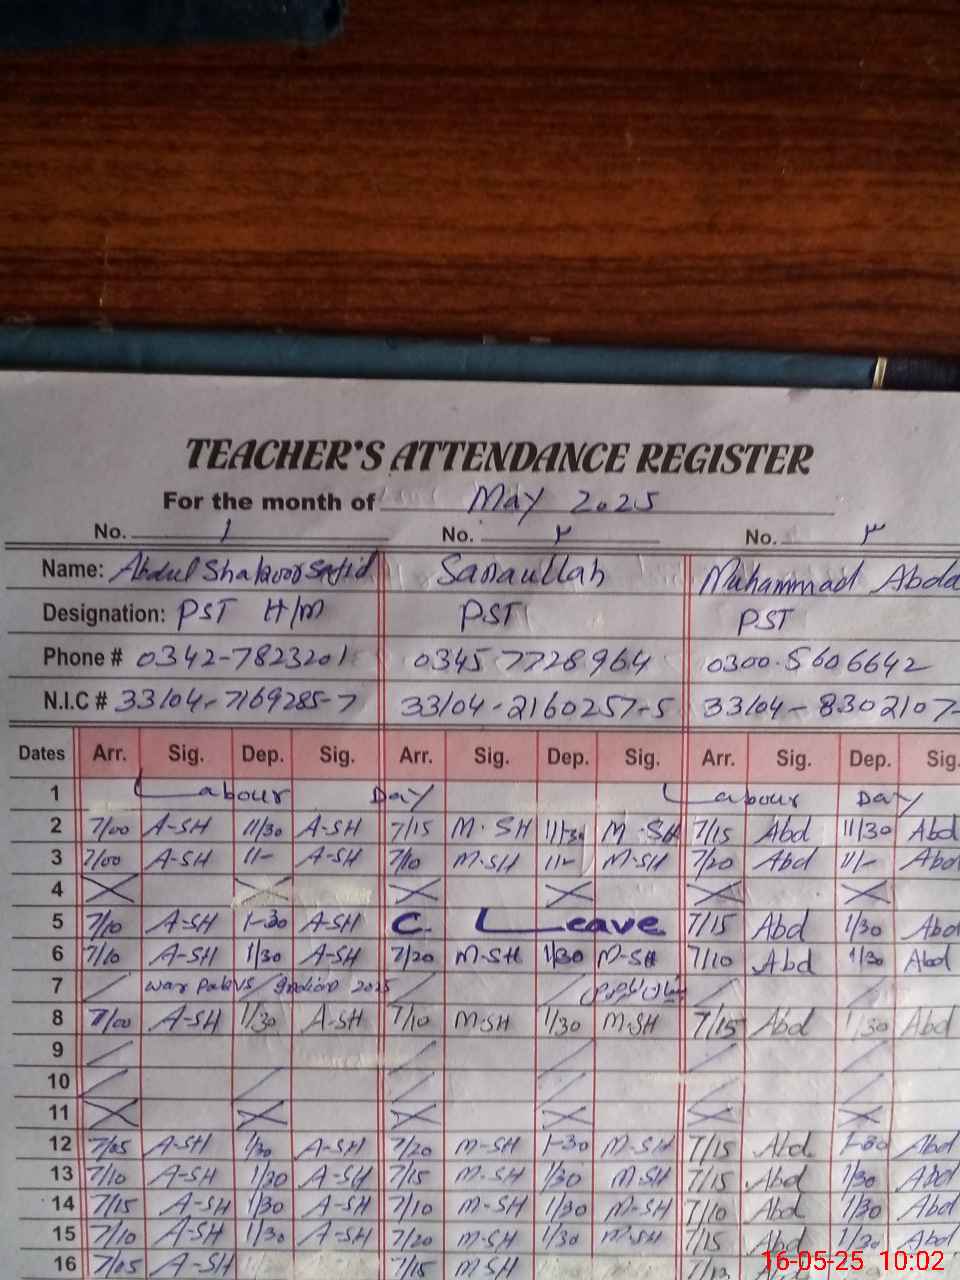 TEACHER'S ATTENDANCE REGISTER
For the month of May 2025
No. 1 No. ۲ No. ۳
Name: Abdul Shakoor Sajid Sanaullah Muhammad Abda
Designation: PST H/M PST PST
Phone # 0342-7823201 0345 7728964 0300-5606642
N.I.C # 33104-7169285-7 33104-2160257-5 33104-8302107-
Dates Arr. Sig. Dep. Sig. Arr. Sig. Dep. Sig. Arr. Sig. Dep. Sig.
1 Labour Day Labour Day
2 7/00 A-SH 11/30 A-SH 7/15 M-SH 11/30 M-SH 7/15 Abd 11/30 Abd
3 7/00 A-SH 11/- A-SH 7/10 M-SH 11/- M-SH 7/20 Abd 11/- Abd
4
5 7/10 A-SH 1-30 A-SH C. Leave 7/15 Abd 1/30 Abd
6 7/10 A-SH 1/30 A-SH 7/20 M-SH 1/30 M-SH 7/10 Abd 1/30 Abd
7 war Pak vs Indian 2025
8 7/00 A-SH 1/30 A-SH 7/10 M-SH 1/30 M-SH 7/15 Abd 1/30 Abd
9
10
11
12 7/05 A-SH 1/30 A-SH 7/20 M-SH 1-30 M-SH 7/15 Abd 1-30 Abd
13 7/10 A-SH 1/30 A-SH 7/15 M-SH 1/30 M-SH 7/15 Abd 1/30 Abd
14 7/15 A-SH 1/30 A-SH 7/10 M-SH 1/30 M-SH 7/10 Abd 1/30 Abd
15 7/10 A-SH 1/30 A-SH 7/20 M-SH 1/30 M-SH 7/15 Abd 1/30 Abd
16 7/05 A-SH 7/15 M-SH
16-05-25 10:02